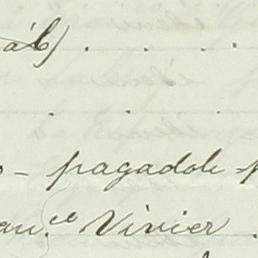 áb) . . .
. . .
- pagadole -
an.ce Vivier .